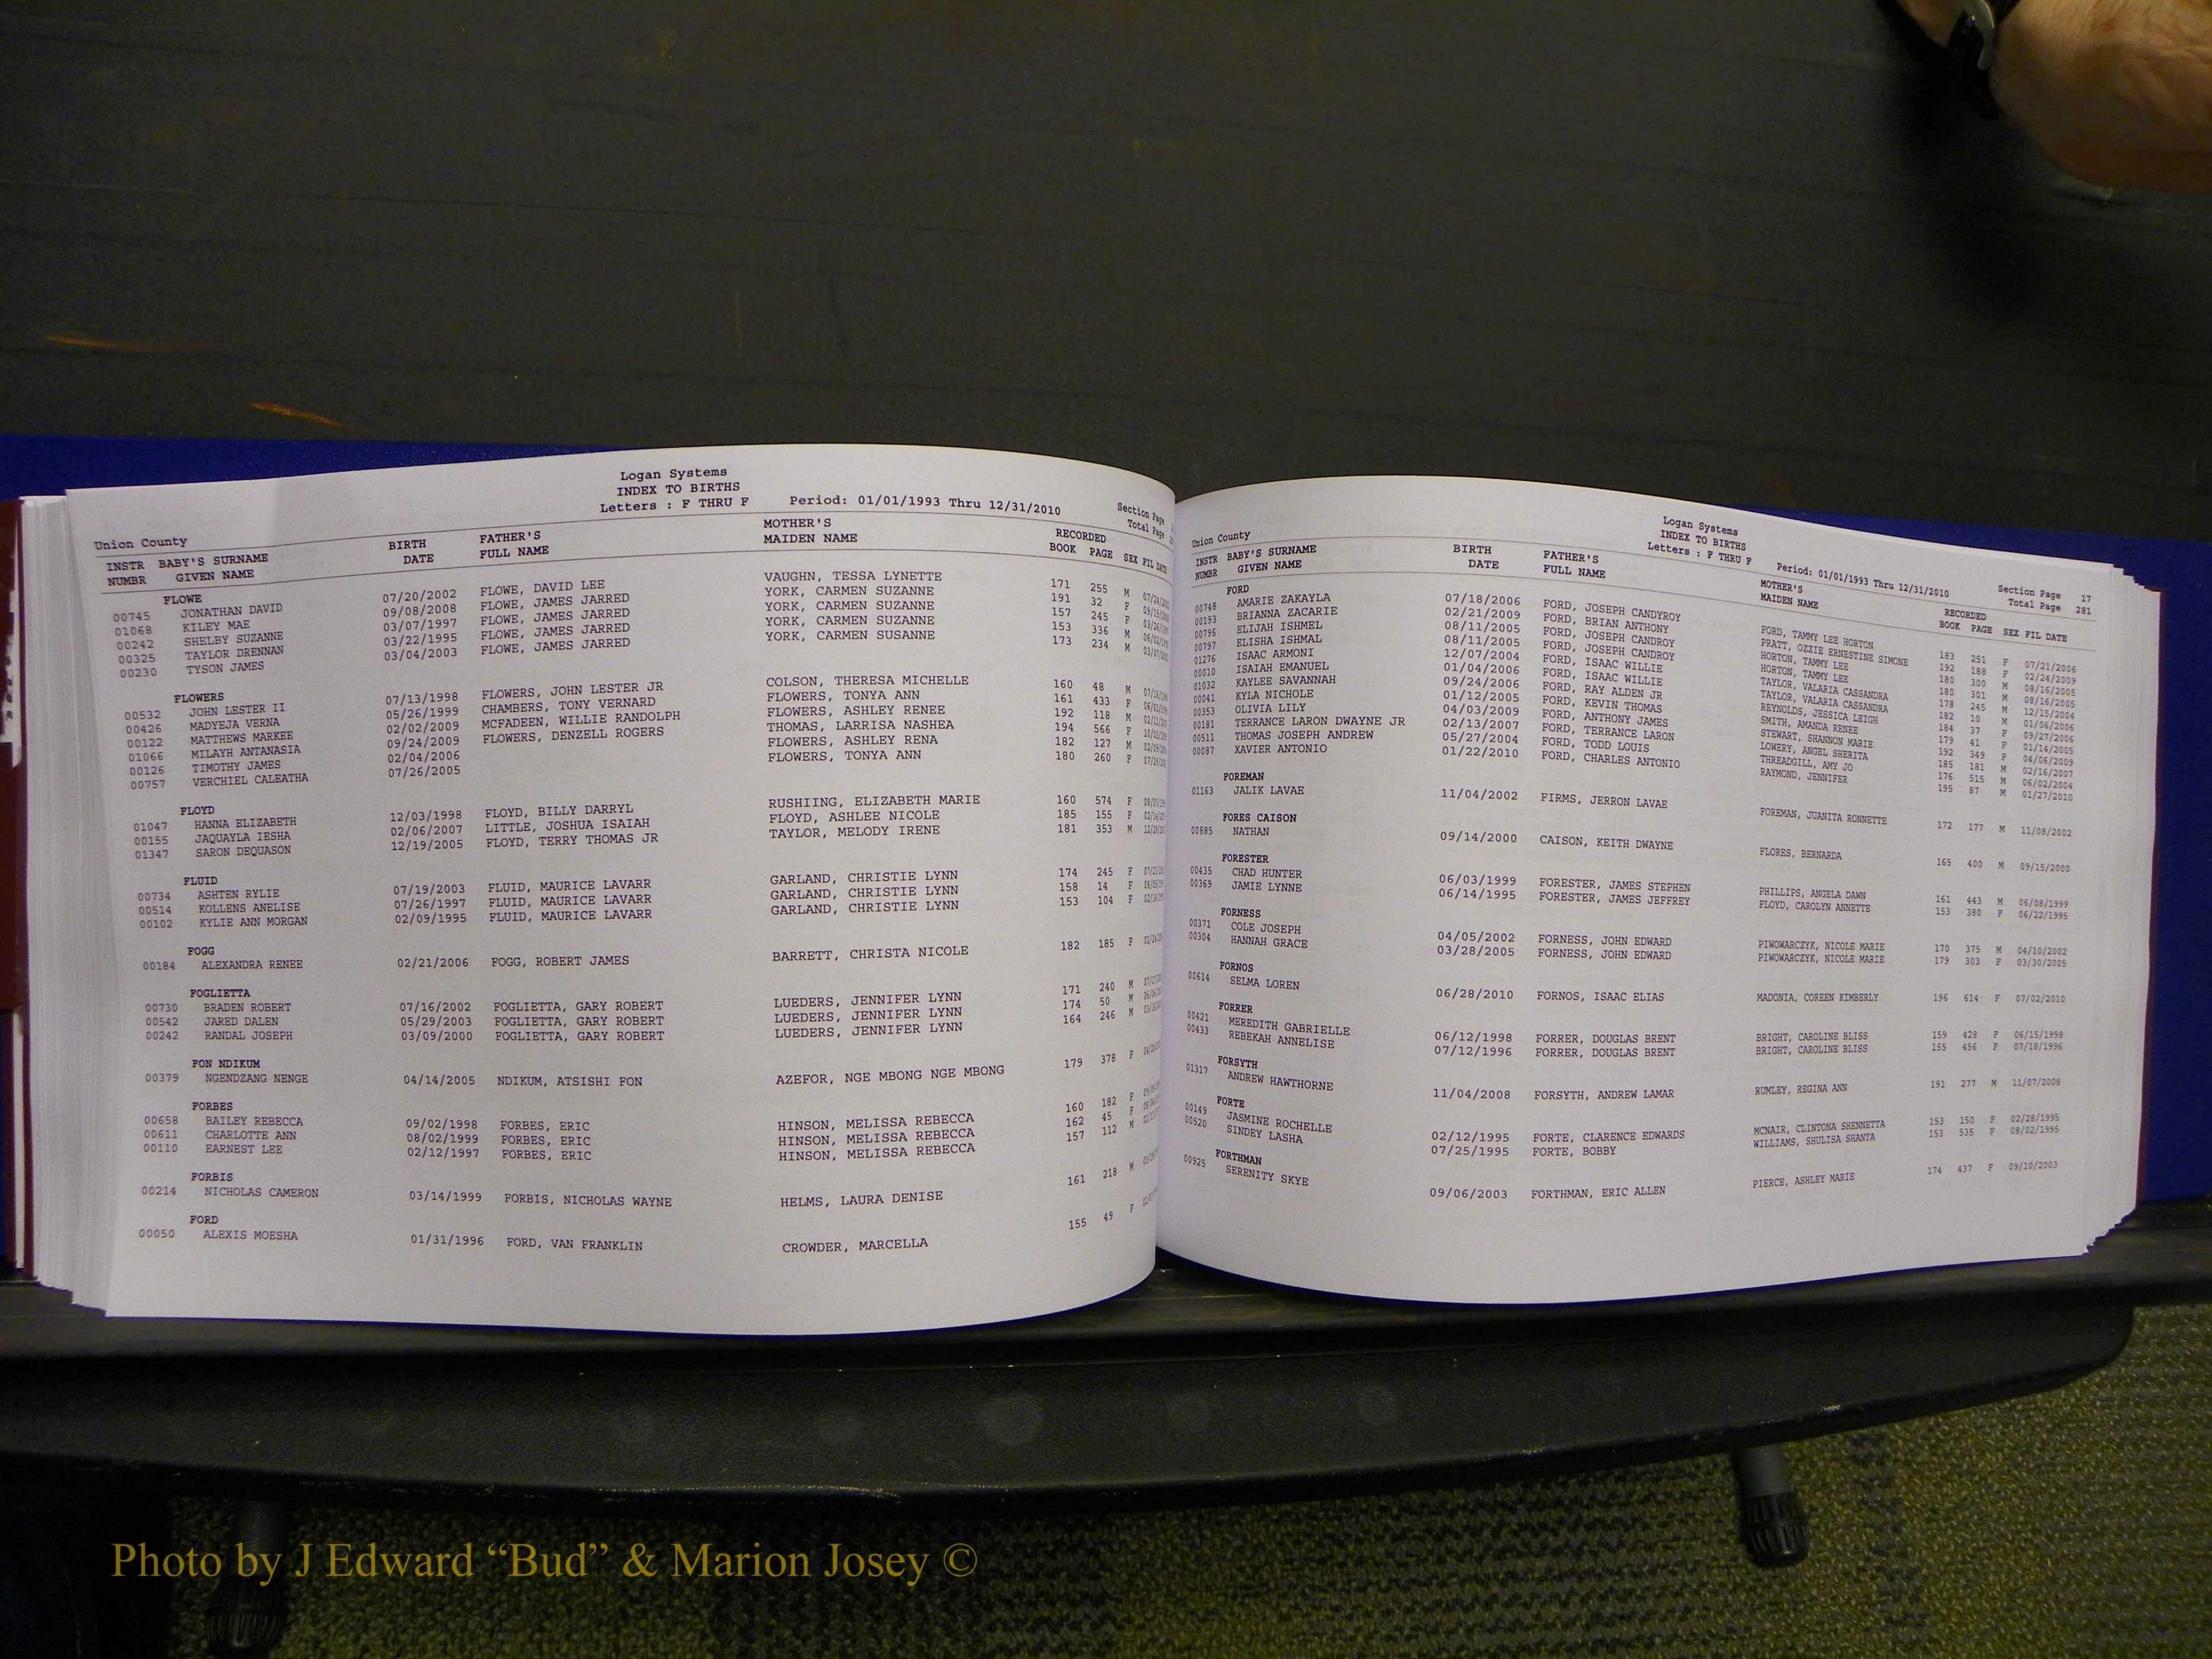 Logan Systems
INDEX TO BIRTHS
Letters : F THRU F Period: 01/01/1993 Thru 12/31/2010
Section Page
Total Page
Union County
INSTR BABY'S SURNAME BIRTH FATHER'S MOTHER'S RECORDED
NUMBR GIVEN NAME DATE FULL NAME MAIDEN NAME BOOK PAGE SEX FIL DATE
FLOWE
00745 JONATHAN DAVID 07/20/2002 FLOWE, DAVID LEE VAUGHN, TESSA LYNETTE 171 255 M
01068 KILEY MAE 09/08/2008 FLOWE, JAMES JARRED YORK, CARMEN SUZANNE 191 32 F
00242 SHELBY SUZANNE 03/07/1997 FLOWE, JAMES JARRED YORK, CARMEN SUZANNE 157 245 F
00325 TAYLOR DRENNAN 03/22/1995 FLOWE, JAMES JARRED YORK, CARMEN SUZANNE 153 336 M
00230 TYSON JAMES 03/04/2003 FLOWE, JAMES JARRED YORK, CARMEN SUSANNE 173 234 M
FLOWERS
00532 JOHN LESTER II 07/13/1998 FLOWERS, JOHN LESTER JR COLSON, THERESA MICHELLE 160 48 M
00426 MADYEJA VERNA 05/26/1999 CHAMBERS, TONY VERNARD FLOWERS, TONYA ANN 161 433 F
00122 MATTHEWS MARKEE 02/02/2009 MCFADEEN, WILLIE RANDOLPH FLOWERS, ASHLEY RENEE 192 118 M
01066 MILAYH ANTANASIA 09/24/2009 FLOWERS, DENZELL ROGERS THOMAS, LARRISA NASHEA 194 566 F
00126 TIMOTHY JAMES 02/04/2006 FLOWERS, ASHLEY RENA 182 127 M
00757 VERCHIEL CALEATHA 07/26/2005 FLOWERS, TONYA ANN 180 260 F
FLOYD
01047 HANNA ELIZABETH 12/03/1998 FLOYD, BILLY DARRYL RUSHIING, ELIZABETH MARIE 160 574 F
00155 JAQUAYLA IESHA 02/06/2007 LITTLE, JOSHUA ISAIAH FLOYD, ASHLEE NICOLE 185 155 F
01347 SARON DEQUASON 12/19/2005 FLOYD, TERRY THOMAS JR TAYLOR, MELODY IRENE 181 353 M
FLUID
00734 ASHTEN RYLIE 07/19/2003 FLUID, MAURICE LAVARR GARLAND, CHRISTIE LYNN 174 245 F
00514 KOLLENS ANELISE 07/26/1997 FLUID, MAURICE LAVARR GARLAND, CHRISTIE LYNN 158 14 F
00102 KYLIE ANN MORGAN 02/09/1995 FLUID, MAURICE LAVARR GARLAND, CHRISTIE LYNN 153 104 F
FOGG
00184 ALEXANDRA RENEE 02/21/2006 FOGG, ROBERT JAMES BARRETT, CHRISTA NICOLE 182 185 F
FOGLIETTA
00730 BRADEN ROBERT 07/16/2002 FOGLIETTA, GARY ROBERT LUEDERS, JENNIFER LYNN 171 240 M
00542 JARED DALEN 05/29/2003 FOGLIETTA, GARY ROBERT LUEDERS, JENNIFER LYNN 174 50 M
00242 RANDAL JOSEPH 03/09/2000 FOGLIETTA, GARY ROBERT LUEDERS, JENNIFER LYNN 164 246 M
FON NDIKUM
00379 NGENDZANG NENGE 04/14/2005 NDIKUM, ATSISHI FON AZEFOR, NGE MBONG NGE MBONG 179 378 F
FORBES
00658 BAILEY REBECCA 09/02/1998 FORBES, ERIC HINSON, MELISSA REBECCA 160 182 F
00611 CHARLOTTE ANN 08/02/1999 FORBES, ERIC HINSON, MELISSA REBECCA 162 45 F
00110 EARNEST LEE 02/12/1997 FORBES, ERIC HINSON, MELISSA REBECCA 157 112 M
FORBIS
00214 NICHOLAS CAMERON 03/14/1999 FORBIS, NICHOLAS WAYNE HELMS, LAURA DENISE 161 218 M
FORD
00050 ALEXIS MOESHA 01/31/1996 FORD, VAN FRANKLIN CROWDER, MARCELLA 155 49 F
Logan Systems
INDEX TO BIRTHS
Letters : F THRU F Period: 01/01/1993 Thru 12/31/2010
Section Page 17
Total Page 281
Union County
INSTR BABY'S SURNAME BIRTH FATHER'S MOTHER'S RECORDED
NUMBR GIVEN NAME DATE FULL NAME MAIDEN NAME BOOK PAGE SEX FIL DATE
FORD
00748 AMARIE ZAKAYLA 07/18/2006 FORD, JOSEPH CANDYROY FORD, TAMMY LEE HORTON 183 251 F 07/21/2006
00193 BRIANNA ZACARIE 02/21/2009 FORD, BRIAN ANTHONY PRATT, OZZIE ERNESTINE SIMONE 192 188 F 02/24/2009
00796 ELIJAH ISHMEL 08/11/2005 FORD, JOSEPH CANDROY HORTON, TAMMY LEE 180 300 M 08/16/2005
00797 ELISHA ISHMAL 08/11/2005 FORD, JOSEPH CANDROY HORTON, TAMMY LEE 180 301 M 08/16/2005
01276 ISAAC ARMONI 12/07/2004 FORD, ISAAC WILLIE TAYLOR, VALARIA CASSANDRA 178 245 M 12/15/2004
00010 ISAIAH EMANUEL 01/04/2006 FORD, ISAAC WILLIE TAYLOR, VALARIA CASSANDRA 182 10 M 01/06/2006
01032 KAYLEE SAVANNAH 09/24/2006 FORD, RAY ALDEN JR REYNOLDS, JESSICA LEIGH 184 37 F 09/27/2006
00041 KYLA NICHOLE 01/12/2005 FORD, KEVIN THOMAS SMITH, AMANDA RENEE 179 41 F 01/14/2005
00353 OLIVIA LILY 04/03/2009 FORD, ANTHONY JAMES STEWART, SHANNON MARIE 192 349 F 04/06/2009
00181 TERRANCE LARON DWAYNE JR 02/13/2007 FORD, TERRANCE LARON LOWERY, ANGEL SHERITA 185 181 M 02/16/2007
00511 THOMAS JOSEPH ANDREW 05/27/2004 FORD, TODD LOUIS THREADGILL, AMY JO 176 515 M 06/02/2004
00087 XAVIER ANTONIO 01/22/2010 FORD, CHARLES ANTONIO RAYMOND, JENNIFER 195 87 M 01/27/2010
FOREMAN
01163 JALIK LAVAE 11/04/2002 FIRMS, JERRON LAVAE FOREMAN, JUANITA RONNETTE 172 177 M 11/08/2002
FORES CAISON
00885 NATHAN 09/14/2000 CAISON, KEITH DWAYNE FLORES, BERNARDA 165 400 M 09/15/2000
FORESTER
00435 CHAD HUNTER 06/03/1999 FORESTER, JAMES STEPHEN PHILLIPS, ANGELA DAWN 161 443 M 06/08/1999
00369 JAMIE LYNNE 06/14/1995 FORESTER, JAMES JEFFREY FLOYD, CAROLYN ANNETTE 153 380 F 06/22/1995
FORNESS
00371 COLE JOSEPH 04/05/2002 FORNESS, JOHN EDWARD PIWOWARCZYK, NICOLE MARIE 170 375 M 04/10/2002
00304 HANNAH GRACE 03/28/2005 FORNESS, JOHN EDWARD PIWOWARCZYK, NICOLE MARIE 179 303 F 03/30/2005
FORNOS
00614 SELMA LOREN 06/28/2010 FORNOS, ISAAC ELIAS MADONIA, COREEN KIMBERLY 196 614 F 07/02/2010
FORRER
00421 MEREDITH GABRIELLE 06/12/1998 FORRER, DOUGLAS BRENT BRIGHT, CAROLINE BLISS 159 428 F 06/15/1998
00433 REBEKAH ANNELISE 07/12/1996 FORRER, DOUGLAS BRENT BRIGHT, CAROLINE BLISS 155 456 F 07/18/1996
FORSYTH
01317 ANDREW HAWTHORNE 11/04/2008 FORSYTH, ANDREW LAMAR RUMLEY, REGINA ANN 191 277 M 11/07/2008
FORTE
00149 JASMINE ROCHELLE 02/12/1995 FORTE, CLARENCE EDWARDS MCNAIR, CLINTONA SHENNETTA 153 150 F 02/28/1995
00520 SINDEY LASHA 07/25/1995 FORTE, BOBBY WILLIAMS, SHULISA SHANTA 153 535 F 08/02/1995
FORTHMAN
00925 SERENITY SKYE 09/06/2003 FORTHMAN, ERIC ALLEN PIERCE, ASHLEY MARIE 174 437 F 09/10/2003
Photo by J Edward “Bud” & Marion Josey ©